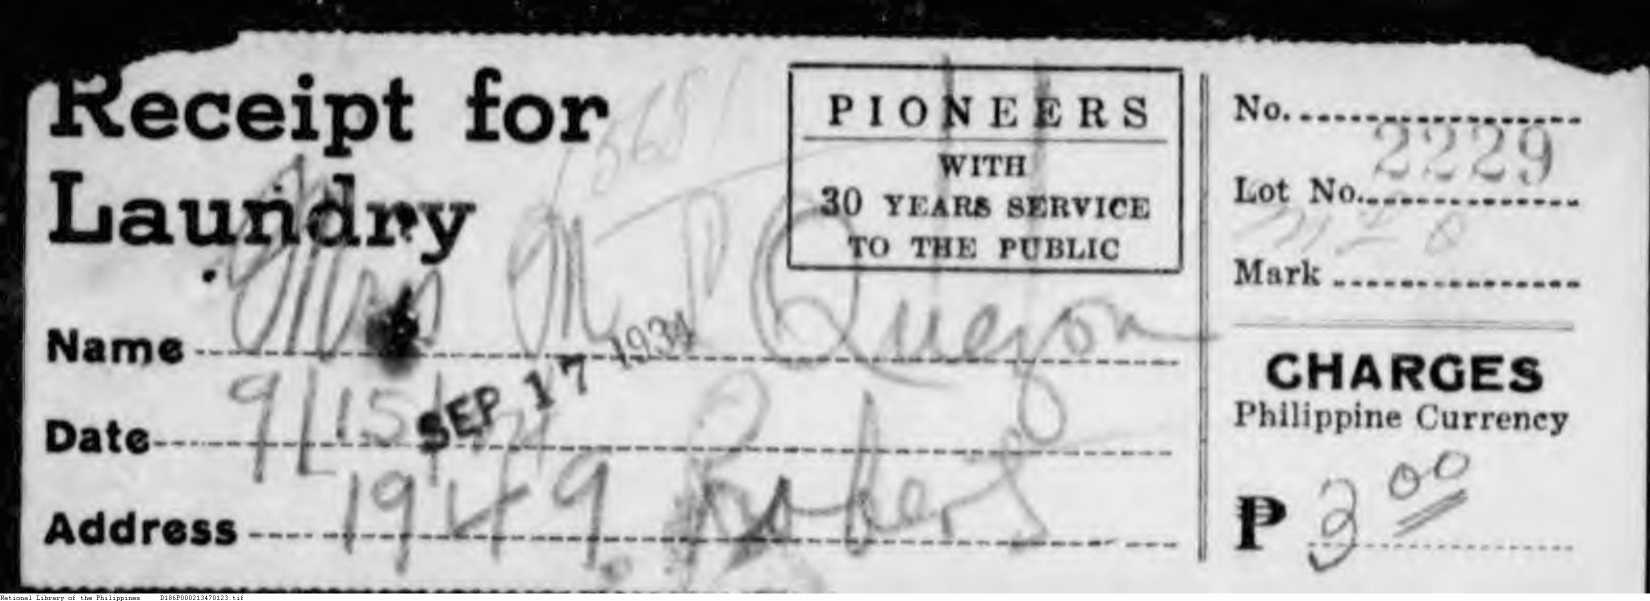 Receipt for
Laundry
PIONEERS
WITH
30 YEARS SERVICE
TO THE PUBLIC
Name Mrs M Quezon
Date 9/15/
SEP 17 1934
Address 1949 Roberts
No.
2229
Lot No.
Mark
CHARGES
Philippine Currency
₱ 3 00
National Library of the Philippines D186P000213470123.tif